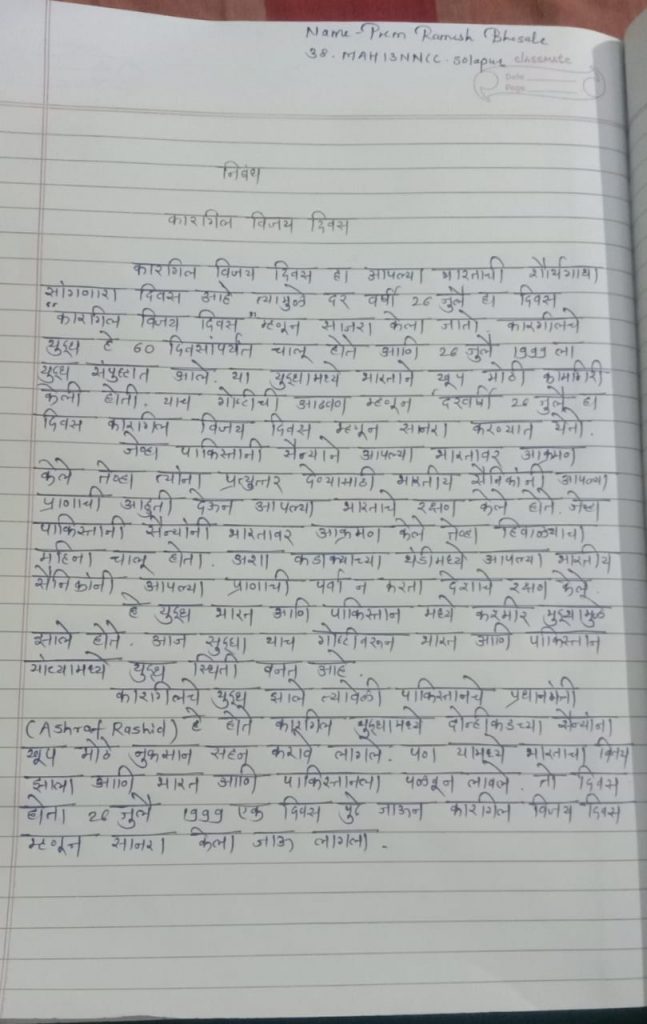 Name - Prem Ramesh Bhosale
38. MAH BNNCC. Solapur classmate
Date
Page
निबंध
कारगिल विजय दिवस
कारगिल विजय दिवस हा आपल्या भारताची शौर्यगाथा
सांगणारा दिवस आहे त्यामुळे दर वर्षी 26 जुलै हा दिवस
"कारगिल विजय दिवस" म्हणून साजरा केला जातो. कारगीलचे
युद्ध हे 60 दिवसांपर्यंत चालू होते आणि 26 जुलै 1999 ला
युद्ध संपुष्टात आले. या युद्धामध्ये भारताने खूप मोठी कामगिरी
केली होती. याच गोष्टीची आठवण म्हणून दरवर्षी 26 जुलै हा
दिवस कारगिल विजय दिवस म्हणून साजरा करण्यात येतो.
जेव्हा पाकिस्तानी सैन्याने आपल्या भारतावर आक्रमण
केले तेव्हा त्यांना प्रत्युत्तर देण्यासाठी भारतीय सैनिकांनी आपल्या
प्राणाची आहुती देऊन आपल्या भारताचे रक्षण केले होते. जेव्हा
पाकिस्तानी सैन्यांनी भारतावर आक्रमण केले तेव्हा हिवाळ्याचा
महिना चालू होता. अशा कडाक्याच्या थंडीमध्ये आपल्या भारतीय
सैनिकांनी आपल्या प्राणाची पर्वा न करता देशाचे रक्षण केले.
हे युद्ध भारत आणि पाकिस्तान मध्ये कश्मीर मुद्द्यामुळे
झाले होते. आज सुद्धा याच गोष्टीवरून भारत आणि पाकिस्तान
यांच्यामध्ये युद्ध स्थिती बनत आहे.
कारगिलचे युद्ध झाले त्यावेळी पाकिस्तानचे प्रधानमंत्री
(Ashraf Rashid) हे होते कारगिल युद्धामध्ये दोन्हीकडच्या सैन्यांना
खूप मोठे नुकसान सहन करावे लागले. पण यामध्ये भारताचा विजय
झाला आणि भारत आणि पाकिस्तानला पळवून लावले. तो दिवस
होता 26 जुलै 1999 एक दिवस पुढे जाऊन कारगिल विजय दिवस
म्हणून साजरा केला जाऊ लागला.